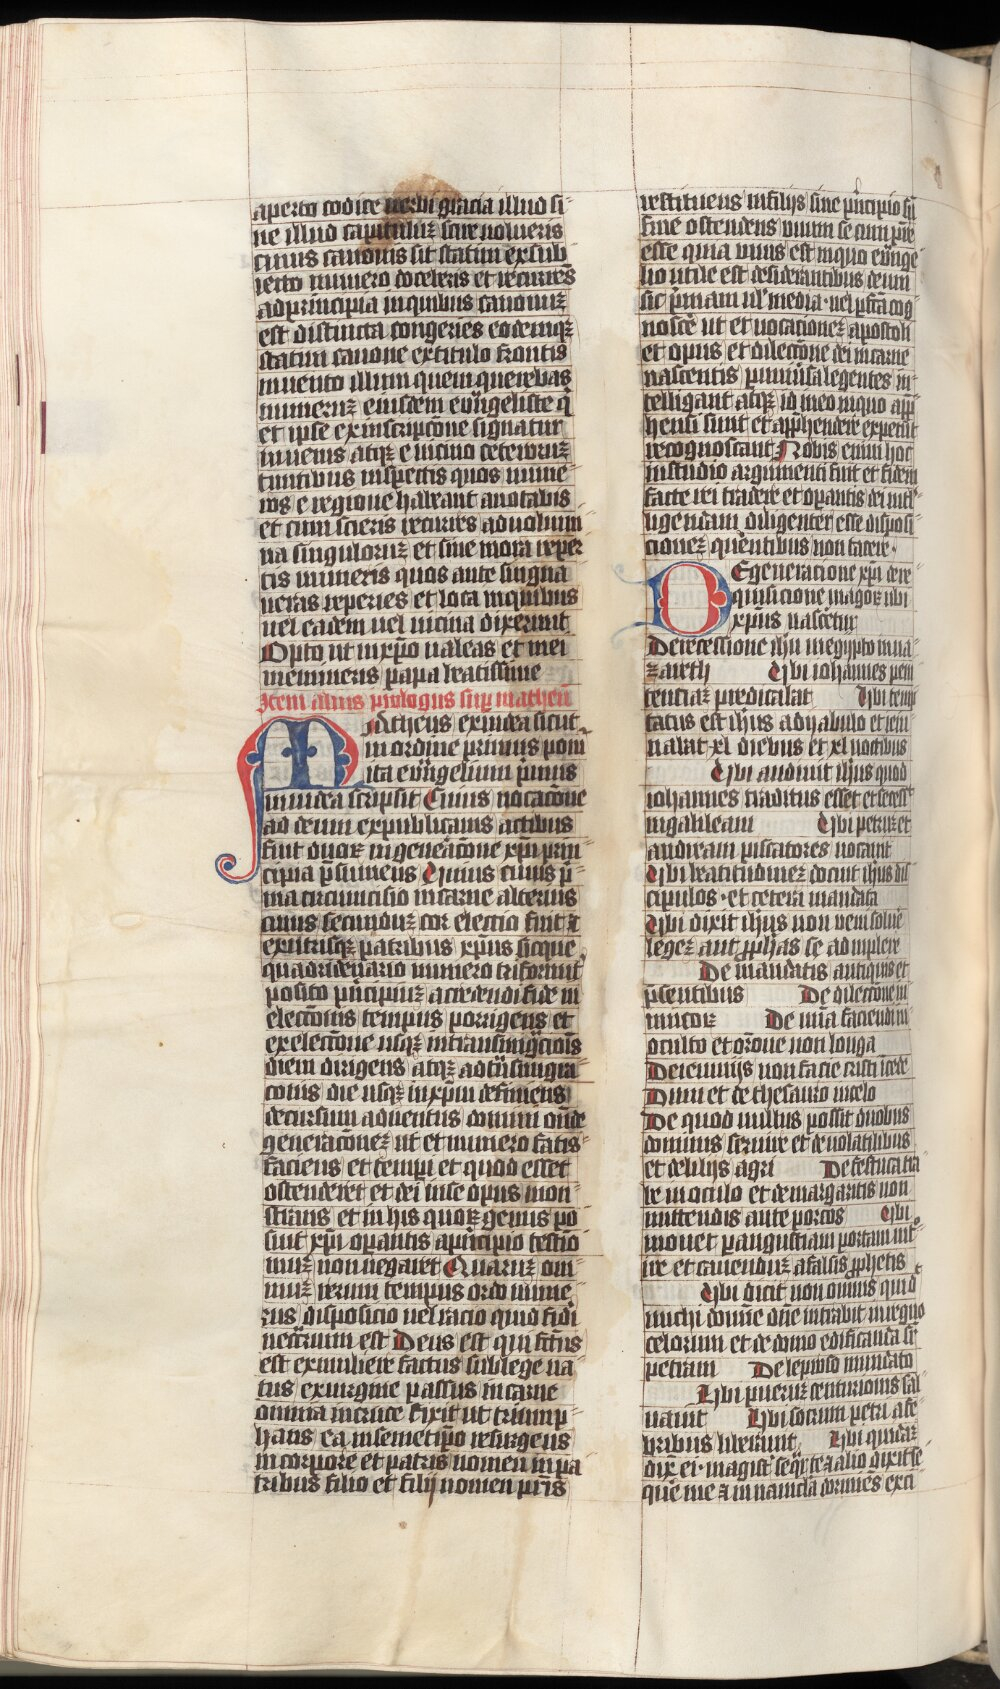 aperto codice uerbi gracia illud si-
ue illud capituluꝫ scire uolueris
cuius canonis sit statim ex sub-
iecto numero doceberis et recurrēs
ad principia in quibus canonuꝫ
est distincta congeries eodemqꝫ
statim canone ex titulo frontis
inuento illum quem querebas
numeruꝫ eiusdem ewāgeliste q̄
et ipse ex inscripcōne signatur
inuenis atqꝫ e uicino ceterorum
inspectis quos nume-
ros e regione habeant anotabis
et cum scieris recurres ad uolumi-
na singuloruꝫ et sine mora reper-
tis numeris quos ante signa-
ueras reperies et loca in quibus
uel eadem uel uicina dixerunt
Opto ut in xp̄o ualeas et mei
memineris papa beatissime
Item alius prologus sup̄ matheū
Matheus ex iudea sicut
in ordine primus poni-
ita ewāgelium p̄mus
in iudea scripsit Cuius uocacōne
ad deum ex publicanis actibus
fuit duoꝝ in generacōne xp̄i prin-
cipia p̄sumens Unius cuius p̄-
ma circumcisio in carne alterius
cuius secunduꝫ cor electio fuit ⁊
ex utrisqꝫ patribus xp̄us sicque
quaderdenario numero triformit̄
posito p̄ncipiuꝫ a credendi fide in
electōnis tempus porrigens et
ex electōne usqꝫ in transmig̃ciōis
diem dirigens atqꝫ a
die usqꝫ in xp̄m definiens
decursum aduentus domini ōnde
generacōneꝫ ut et numero satis-
faciens et tempī et quod esset
ostenderet et dei in se opus mon-
strans et in his quoꝝ genus po-
suit xp̄i op̄antis a p̄ncipio testio-
niuꝫ non negaret Quaruꝫ om̄-
niuꝫ rerum tempus ordo nume-
rus disposicio uel racio quod fidi
necessarium est Deus est qui fc̄tus
est ex muliere factus sub lege na-
tus ex uirgine passus in carne
omnia in cruce fixit ut triump-
hans ea in semetip̄o resurgens
in corpore et patris nomen in pa-
tribus filio et filij nomen pr̄is
restituens in filijs sine p̄ncipio sn̄
fine ostendens unum se cum pr̄e
esse quia unus est in quo ewāge-
lio utile est desiderantibus deum
sic p̄mam ul̄ media uel ꝑfc̄a cog-
noscē ut et uocacioneꝫ apostoli
et opus et dilectōne dei in carne
nascentis p̄ uniūsa legentes in-
telligant atqꝫ id in eo in quo app̄-
hensi sunt et app̄hendere expetūt
recognoscant Nobis enim hoc
in studio argumenti fuit et fidem
facte rei tradere et op̄antis dei intel-
ligendam diligenter esse disposi-
cioneꝫ querentibus non tacere
De generacione xp̄i de re-
quisicione magoꝝ ubi
xp̄us nascetur
De recessione ih̄u in egypto in na-
ꝫareth Ubi iohannes peni-
tenciaꝫ predicabat Ubi temp-
tatus est ih̄us a dyabulo et ieiu-
nabat xl diebus et xl noctibus
Ubi audiuit ih̄us quod
iohannes traditus esset et secess-
in galileam Ubi petruꝫ et
andream piscatores uocauit
Ubi beatitudineꝫ docuit ih̄us dis-
cipulos et cetera mandata
Ubi dixit ih̄us non ueni soluē
legeꝫ aut ꝓph̄as sꝫ adimplere
De mandatis antiquis et
p̄sentibus De dilectōne in-
imicoꝝ De mīa facienda in
oculto et orōne non longa
De ieiunijs non facie tristi incede-
Dum et de thesauro in celo
De quod nullus possit duobus
dominis seruire et de uolatilibus
et de lilijs agri De festuca tra-
be in oculo et de margaritis non
mittendis ante porcos Ubi
mouet ꝑ angustam portam int̄-
re et cauenduꝫ a falsis ꝓphetis
Ubi dicit non omnis qui d-
michi domīe dn̄e intrabit in regno
celorum et de domo edificanda sr̄
petram De leproso mundato
Ubi pueruꝫ centurionis sal-
uauit Ubi socrum petri a fe-
bribus liberauit Ubi quidaꝫ
dix̄ ei magist̄ seq̄r te ⁊ alio dixit se-
quere me ⁊ in nauicla dormiēs exci-